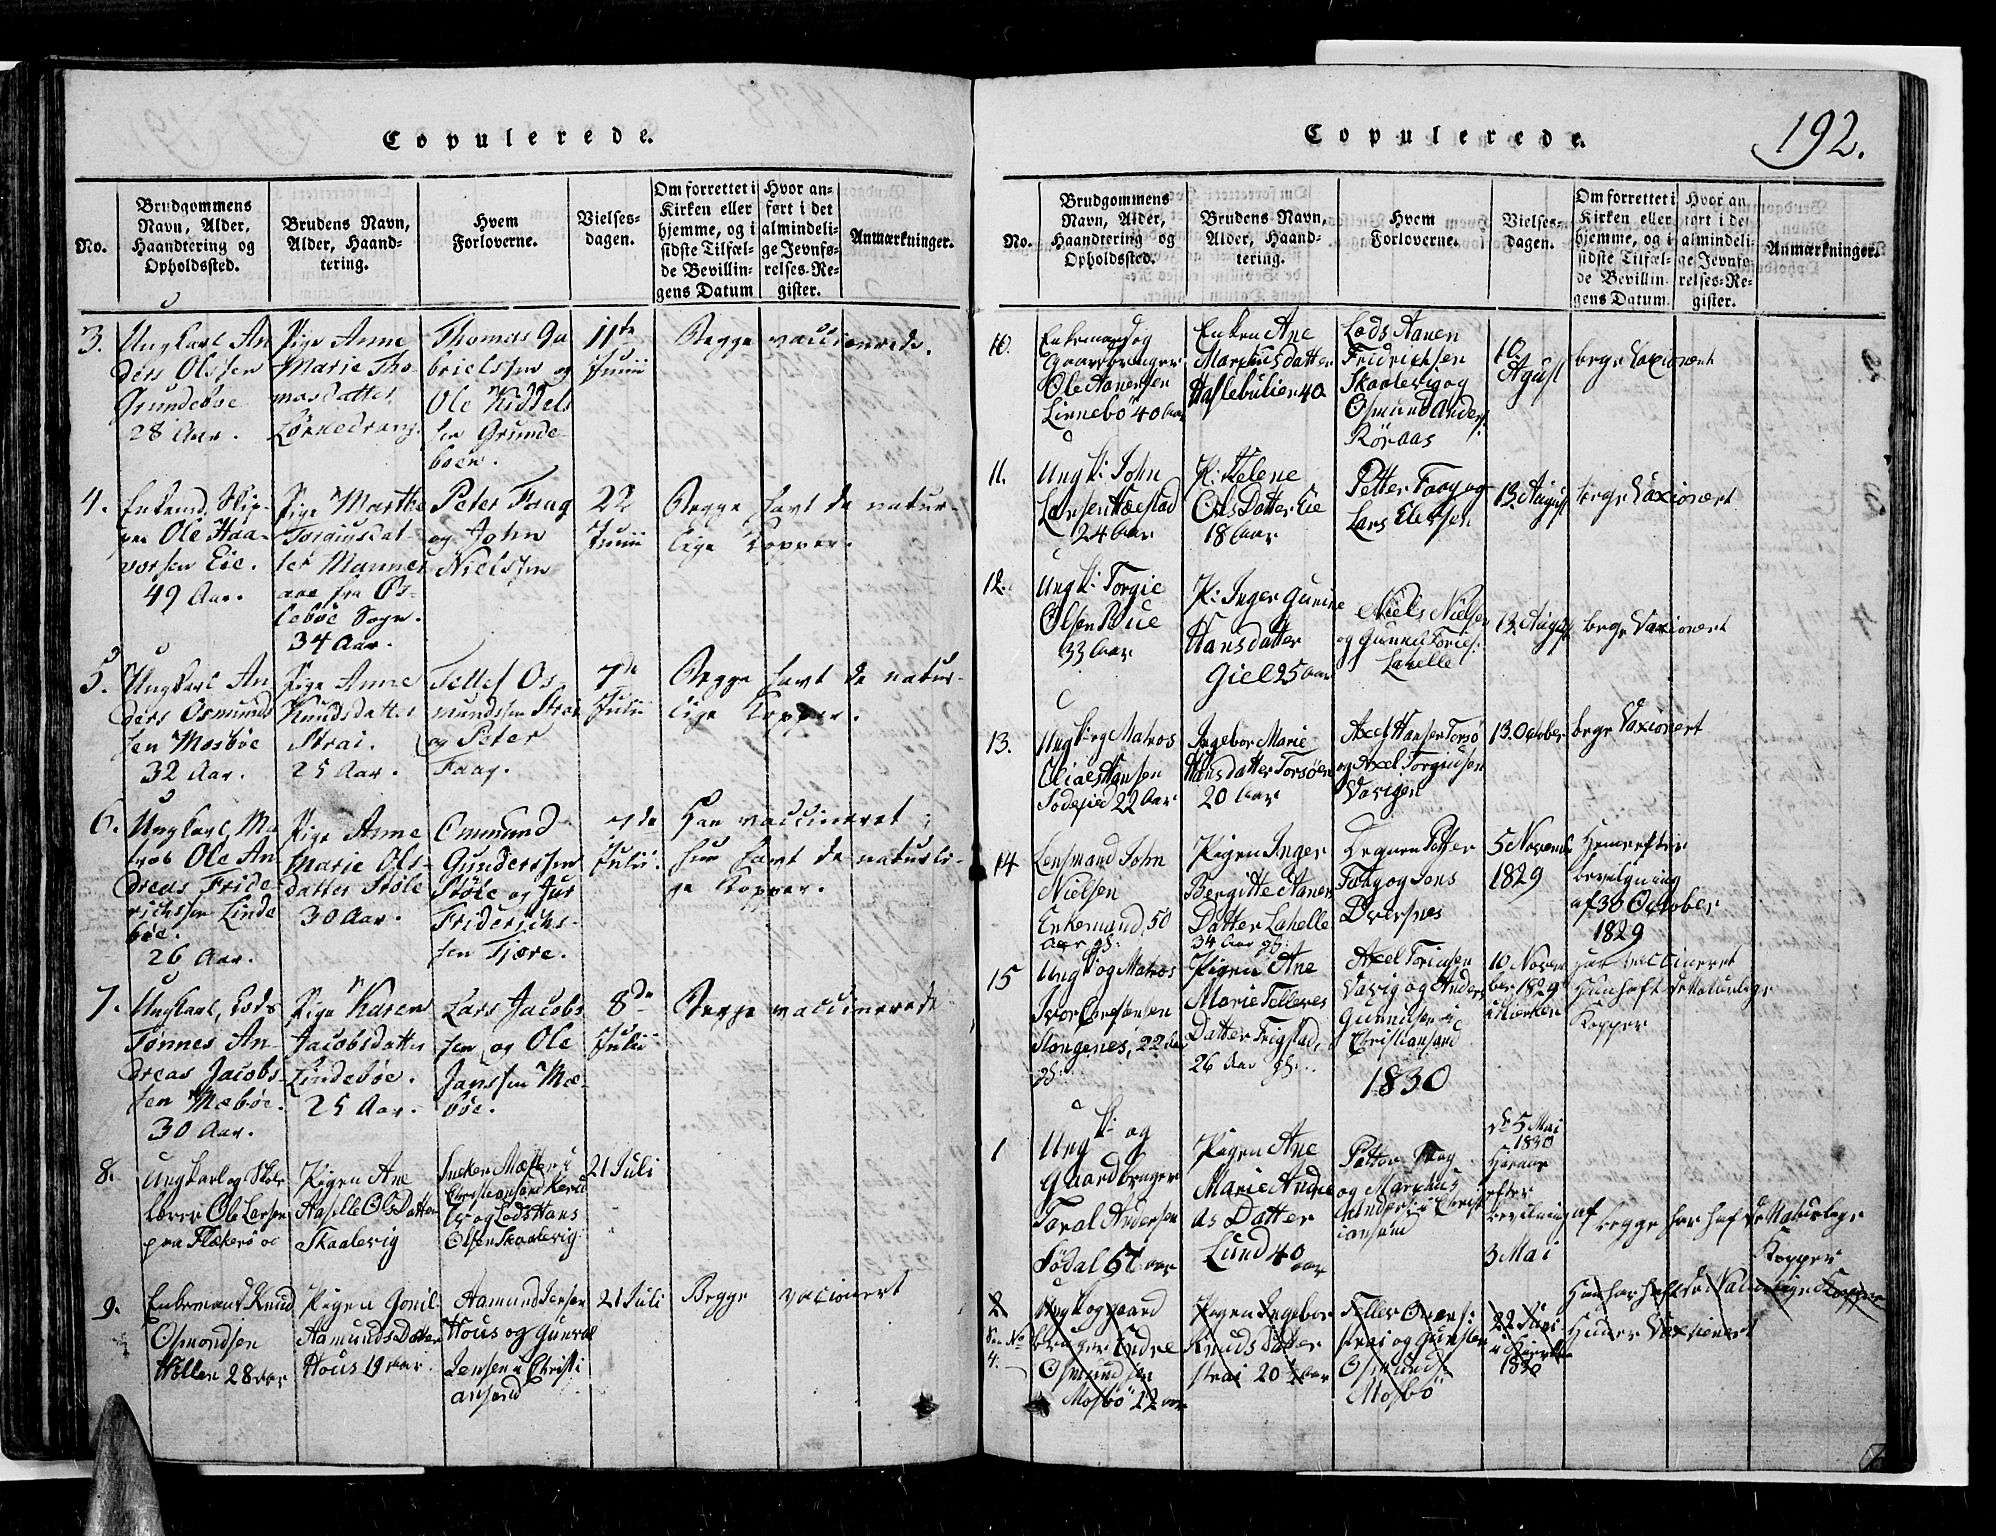 Copulerede.
No.
Brudgommens
Navn, Alder,
Haandtering og
Opholdssted.
Brudens Navn,
Alder, Haand-
tering.
Hvem
Forloverne.
Vielses-
dagen.
Om forrettet i
Kirken eller
hjemme, og i
sidste Tilfæl-
de Bevillin-
gens Datum
Hvor an-
ført i det
almindeli-
ge Jevnfø-
relses-Re-
gister.
Anmærkninger.
3.
Ungkarl An
ders Olssen
Grundebøe
28 Aar.
Pige Anne
Marie Tho
masdatter
Thomas Ga
brielssen og
Ole Kittels
sen Grunde
boen.
11te
Junii
Begge vaccinerede.
4.
Enkemd. Skip-
per Ole Haa-
vorsen Eie.
49 Aar.
Pige Marthe
Torjusdat-
ter
fra Os-
lebøe Sogn.
34 Aar.
Peter Faag
og John
Nielssen
22
Junii
Begge havt de natur-
lige Kopper.
5.
Ungkarl An
ders Osmund
sen Mosbøe
32 Aar.
Pige Anne
Knudsdatter
Strai.
25 Aar.
Tellef Os-
mundssen Strai
og Peter
Faag.
7de
Julii
Begge havt de natur-
lige Kopper.
6.
Ungkarl, Ma
tros Ole An
dreas Fride-
richssen Linde
bøe.
26 Aar.
Pige Anne
Marie Ols-
datter Støle
30 Aar.
Omund
Gunderssen
Støle og Jur
Friderichs-
sen Fjære.
7de
Julii.
Han vaccineret
hun havt de naturli-
ge Kopper.
7.
Ungkarl, Lods
Tønnes An-
dreas Jacobs-
sen Mæbøe.
30 Aar.
Pige Karen
Jacobsdatter
Lindebøe.
25 Aar.
Lars Jacobs
sen og Ole
Janssen Mæ-
bøe.
8de
Julii
Begge vaccinerede
8.
Ungkarl og Skole
lærer Ole Larsen
paa Flækerø
Pigen Ane
Aselle Ols Datter
Skaalevig
Christiansand
og Lods Hans
Olsen Skaalevig
21 Juli
9.
Enkemant Knud
Osmondsen
28 Aar
Pigen Gonil
Aamunds Datter
Hous 19 Aar.
Aamund Jensen
Hous og Gunval
Jensen i Christi
ansand
21 Juli
Begge vacionert
Copulerede.
192.
No.
Brudgommens
Navn, Alder,
Haandtering og
Opholdssted.
Brudens Navn,
Alder, Haand-
tering.
Hvem
Forloverne.
Vielses-
dagen.
Om forrettet i
Kirken eller
hjemme, og i
sidste Tilfæl-
de Bevillin-
gens Datum.
Hvor an
ført i det
almindeli-
ge Jevnfø-
relses-Re-
gister.
Anmærkninger.
10.
Enkemand og
Gaardbruger
Ole Aanensen
Linnebö 40 Aar
Enken Ane
Marcusdatter
40
Lods Aanen
Fridrichsen
Skaalevig og
Osmund Anders:
Röraas
10.
Agust
begge Vaxionert
11.
Ung k: John
Larsen
24 Aar
P: Helene
Ols Datter Eie
18 Aar
Petter Faag og
Lars
13 August
begge Vaxionert
12.
Ung k: Torgie
Olsen
33 Aar
P: Inger Gurine
Hansdatter
Giel 25 Aar
Niels Nielsen
og Gunnil
Lahelle
13 August
begge Vaxionert
13.
Matros
Hansen
22 Aar
Ingebor Marie
Hansdatter Torsöen
20 Aar
Axel Hansen Torsö
og Axel Torgiusen
Vavigen
13. October
begge Vaxionert
14
Lensmand John
Nielsen
Enkemand, 50
Aar gl:
Pigen Inger
Bergitte Aanen
Datter Lahelle
34 Aar gl:
Degnen Petter
Faag og Jens
5 Novemb
1829
Hieme efter
bevilgning
af 30 October
1829
15
Ung k og Matros
22 Aar
gl:
Pigen Ane
Marie Telleves
Datter Frigstad,
26 Aar gl:
Axel Toriusen
Vavig og Anders
Gunnusen i
Christiansand
10 Novem
ber 1829
i Kierken
Han vaccineret
Hun haft de Naturlige
Kopper
1830
1
Ung k: og
Gaardbruger
Toral Andersen
Födal 57 aar
Pigen Ane
Marie Andre
as Datter
Lund 40
aar
Petter Faag
og Marchus
Andersen i Christ
iansand
d: 5 Mai
1830
Hieme
efter
bevilning af
3 Mai
begge har haft de Naturlige
Kopper
2
4.
Ung k og gaard
bruger Endre
Osmundsen
Mosbö 22 aar
Pigen Ingebor
Knuds Datter
Strai 20½ aar
Tellev Overs:
Strai og Gunsten
Osmunds:
Mosbö
22 Juni
i Kierken
1830
Han har haft de Naturlige Kopper
Hun er Vaxsinert